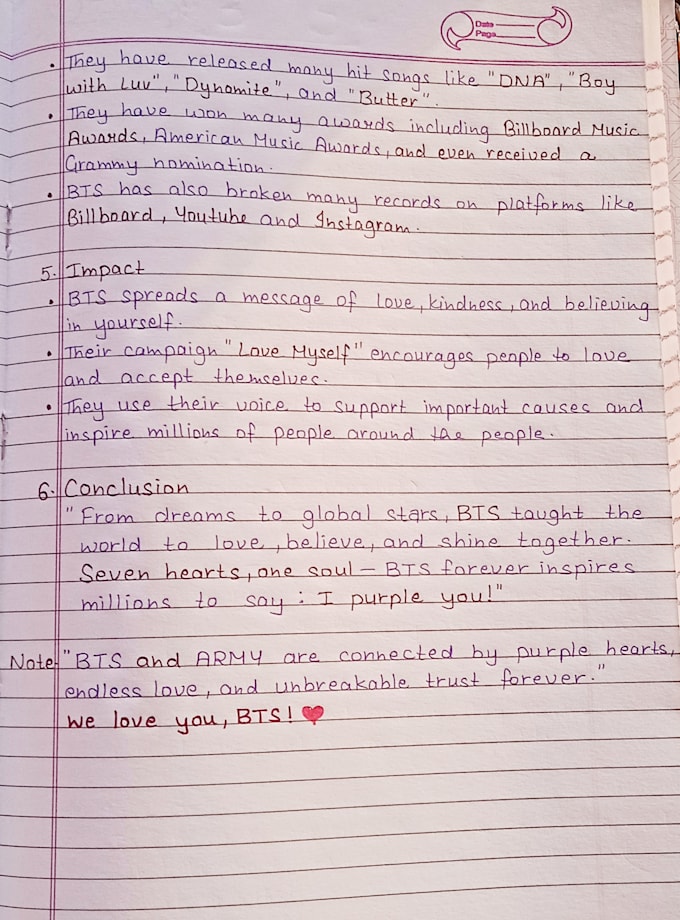 Date
Page
• They have released many hit songs like "DNA", "Boy
with Luv", "Dynamite", and "Butter".
• They have won many awards including Billboard Music
Awards, American Music Awards, and even received a
Grammy nomination.
• BTS has also broken many records on platforms like
Billboard, Youtube and Instagram.
5. Impact
• BTS spreads a message of love, kindness, and believing
in yourself.
• Their campaign "Love Myself" encourages people to love
and accept themselves.
• They use their voice to support important causes and
inspire millions of people around the people.
6. Conclusion
"From dreams to global stars, BTS taught the
world to love, believe, and shine together.
Seven hearts, one soul — BTS forever inspires
millions to say : I purple you!"
Note "BTS and ARMY are connected by purple hearts,
endless love, and unbreakable trust forever."
We love you, BTS! ❤